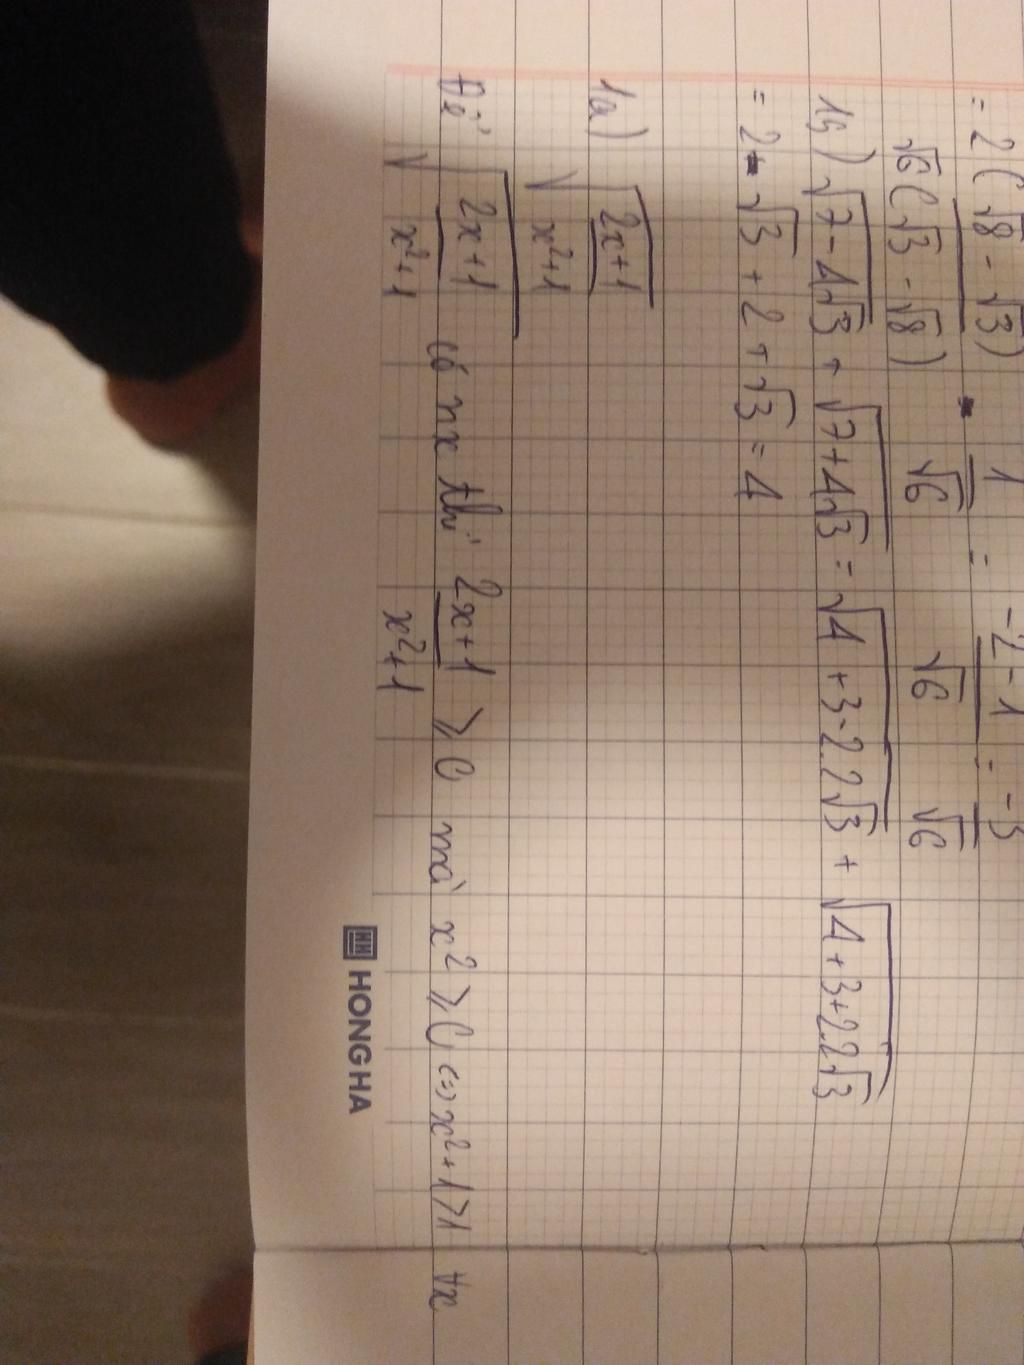 = 2(√8 - √3) / √6(√3 - √8) - 1/√6 = -2-1/√6 = -3/√6
15) √(7-4√3) + √(7+4√3) = √(4+3-2.2√3) + √(4+3+2.2√3)
= 2-√3 + 2+√3 = 4
1a) √((2x+1)/(x²+1))
Để √((2x+1)/(x²+1)) có nx thì (2x+1)/(x²+1) ⩾ 0 mà x² ⩾ 0 <=> x²+1 > 1 ∀x
HONG HA